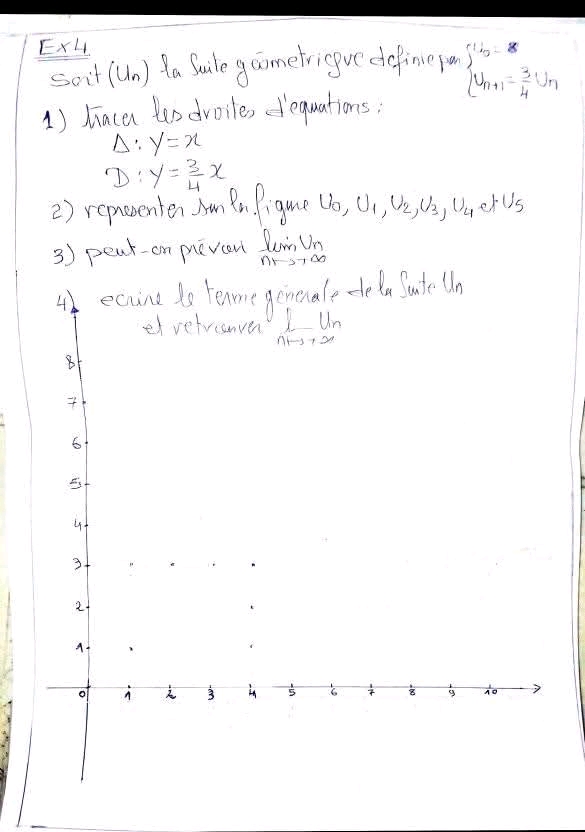 Ex4
Soit (Un) la suite géométrique definie par {U0 = 8
{Un+1 = 3/4 Un
1) tracer les droites d'equations :
Δ : y = x
D : y = 3/4 x
2) representer sur la figure U0, U1, U2, U3, U4 et U5
3) peut-on prévoir lim Un
n→+∞
4) ecrire le terme générale de la suite Un
et retrouver l Un
n→+∞
8
7
6
5
4
3
2
1
0 1 2 3 4 5 6 7 8 9 10